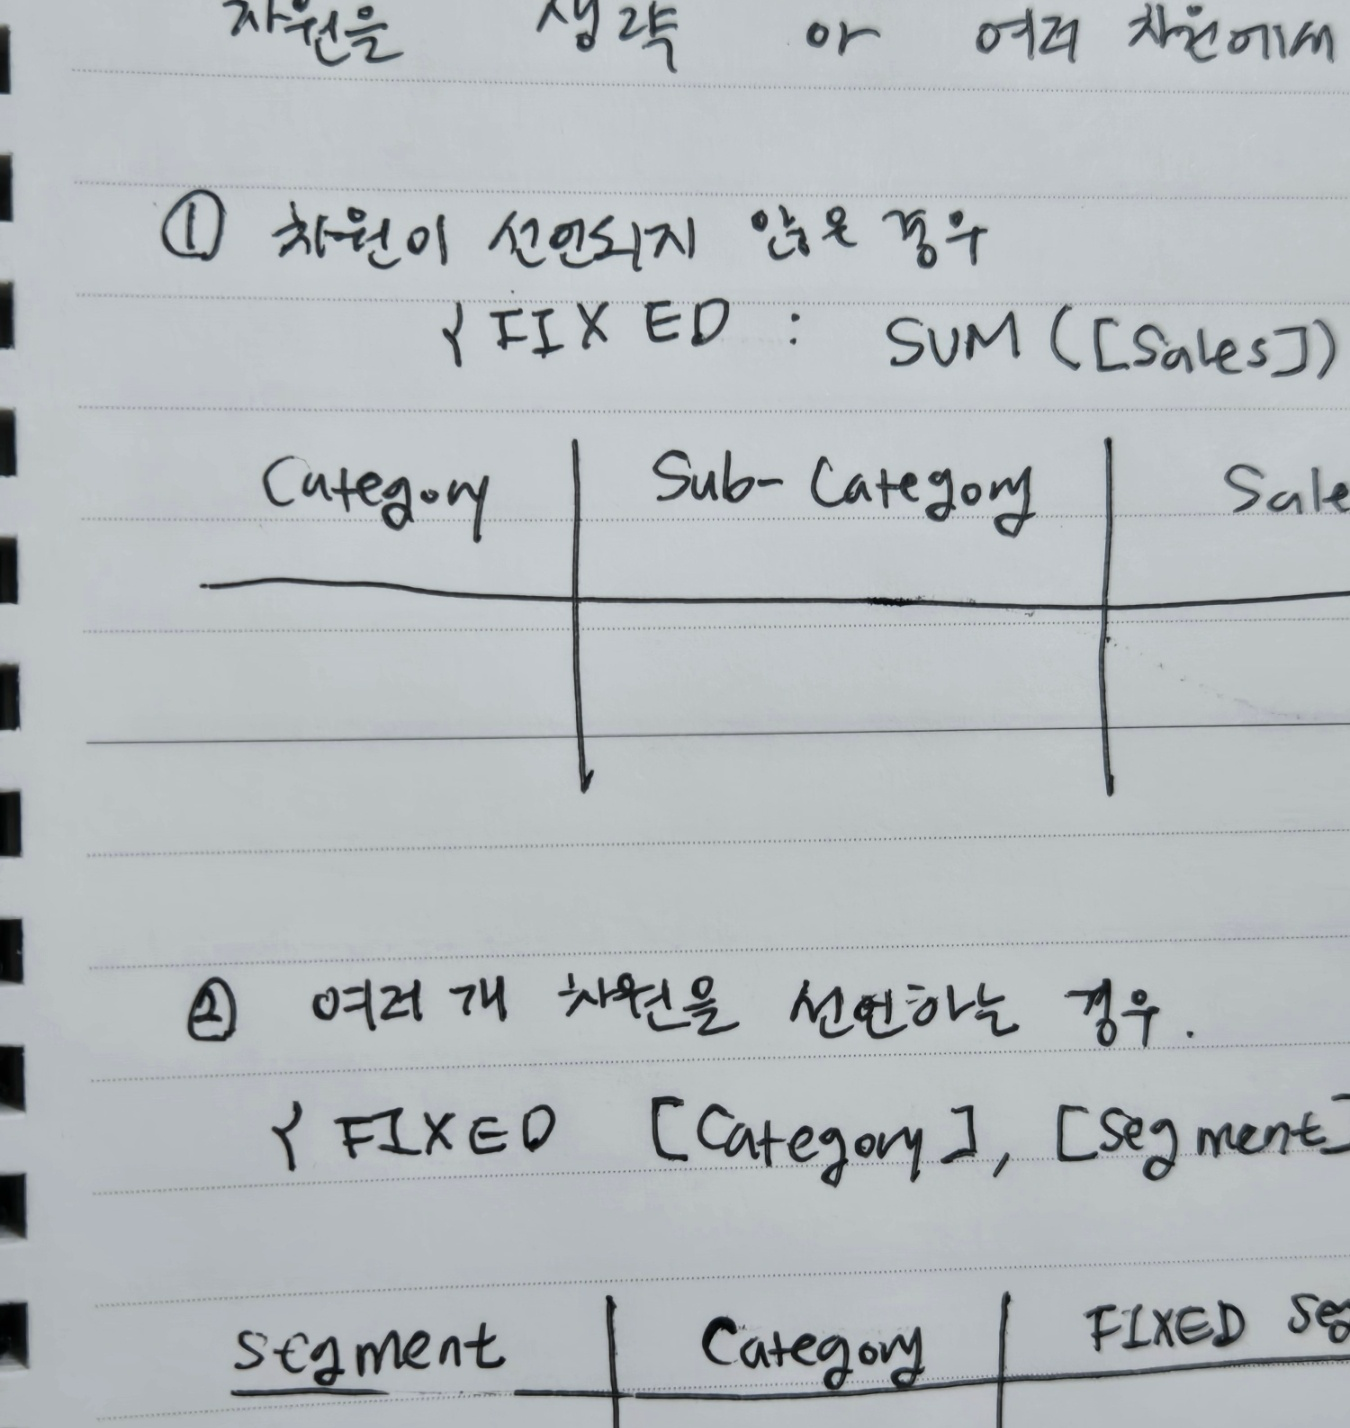 차원을 생략 or 여러 차원에서
① 차원이 선언되지 않은 경우
{ FIXED : SUM ([Sales])
Category Sub-Category Sale
② 여러 개 차원을 선언하는 경우.
{ FIXED [Category], [Segment]
Segment Category FIXED Seg